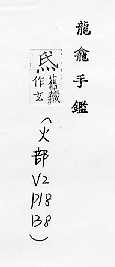 龍龕手鑑
舊藏
作玄
(火部
V2
P18
B8)